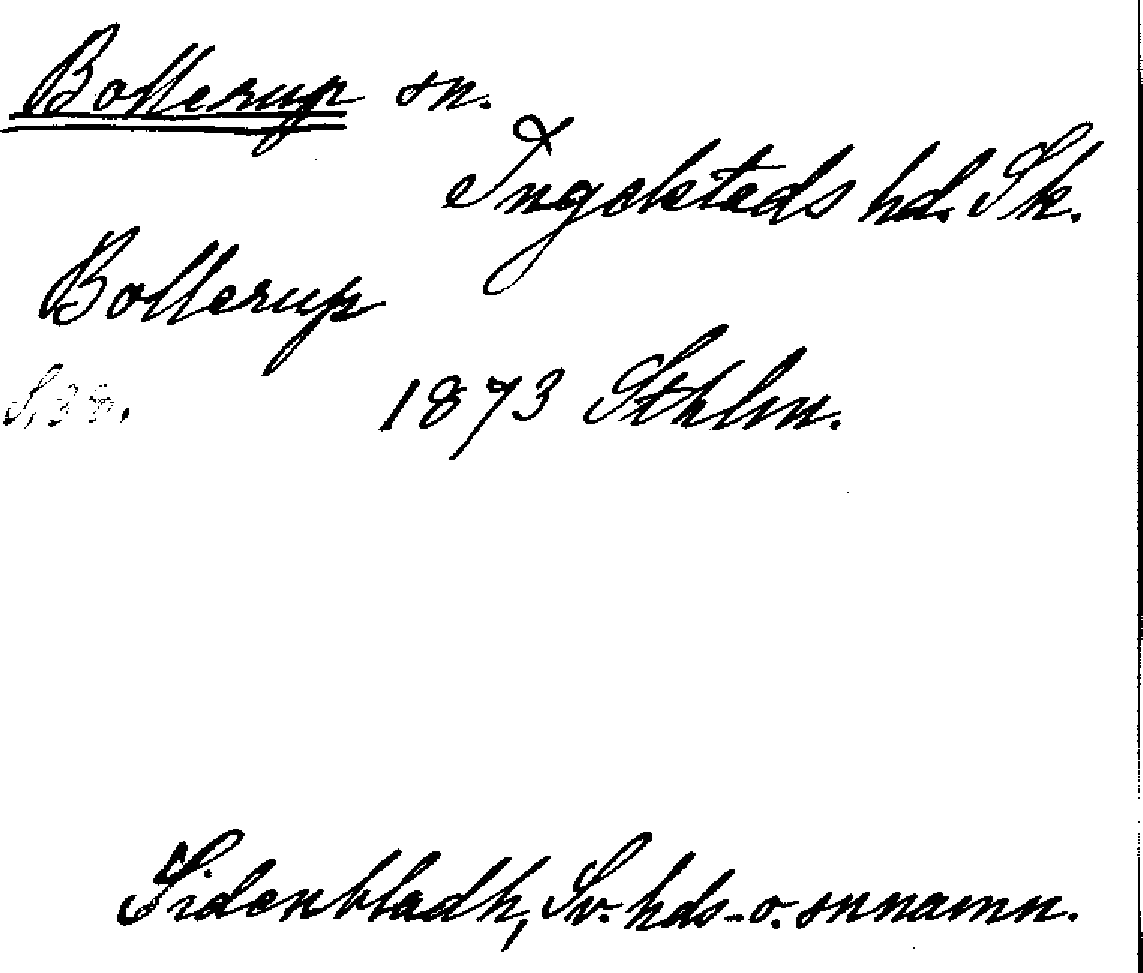 Bollerup sn.
Ingelsteds hd. Sk.
Bollerup
S. 38. 1873 Sthlm.
Sidenbladh, Sv. hds- o. snnamn.